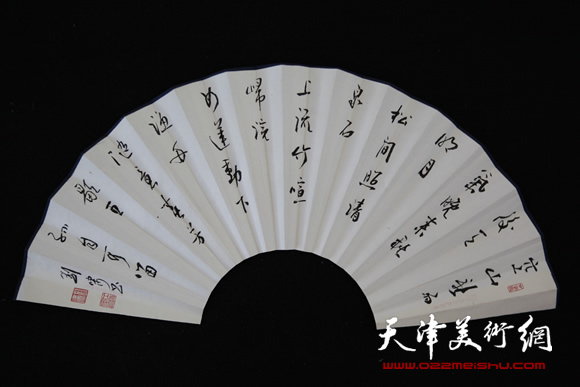 空山新雨
後天
氣晚来秋
明月
松間照清
泉石
上流竹喧
歸浣
女蓮動下
漁舟
隨意春芳
歇王
孫自可留
天津美術網
www.022meishu.com